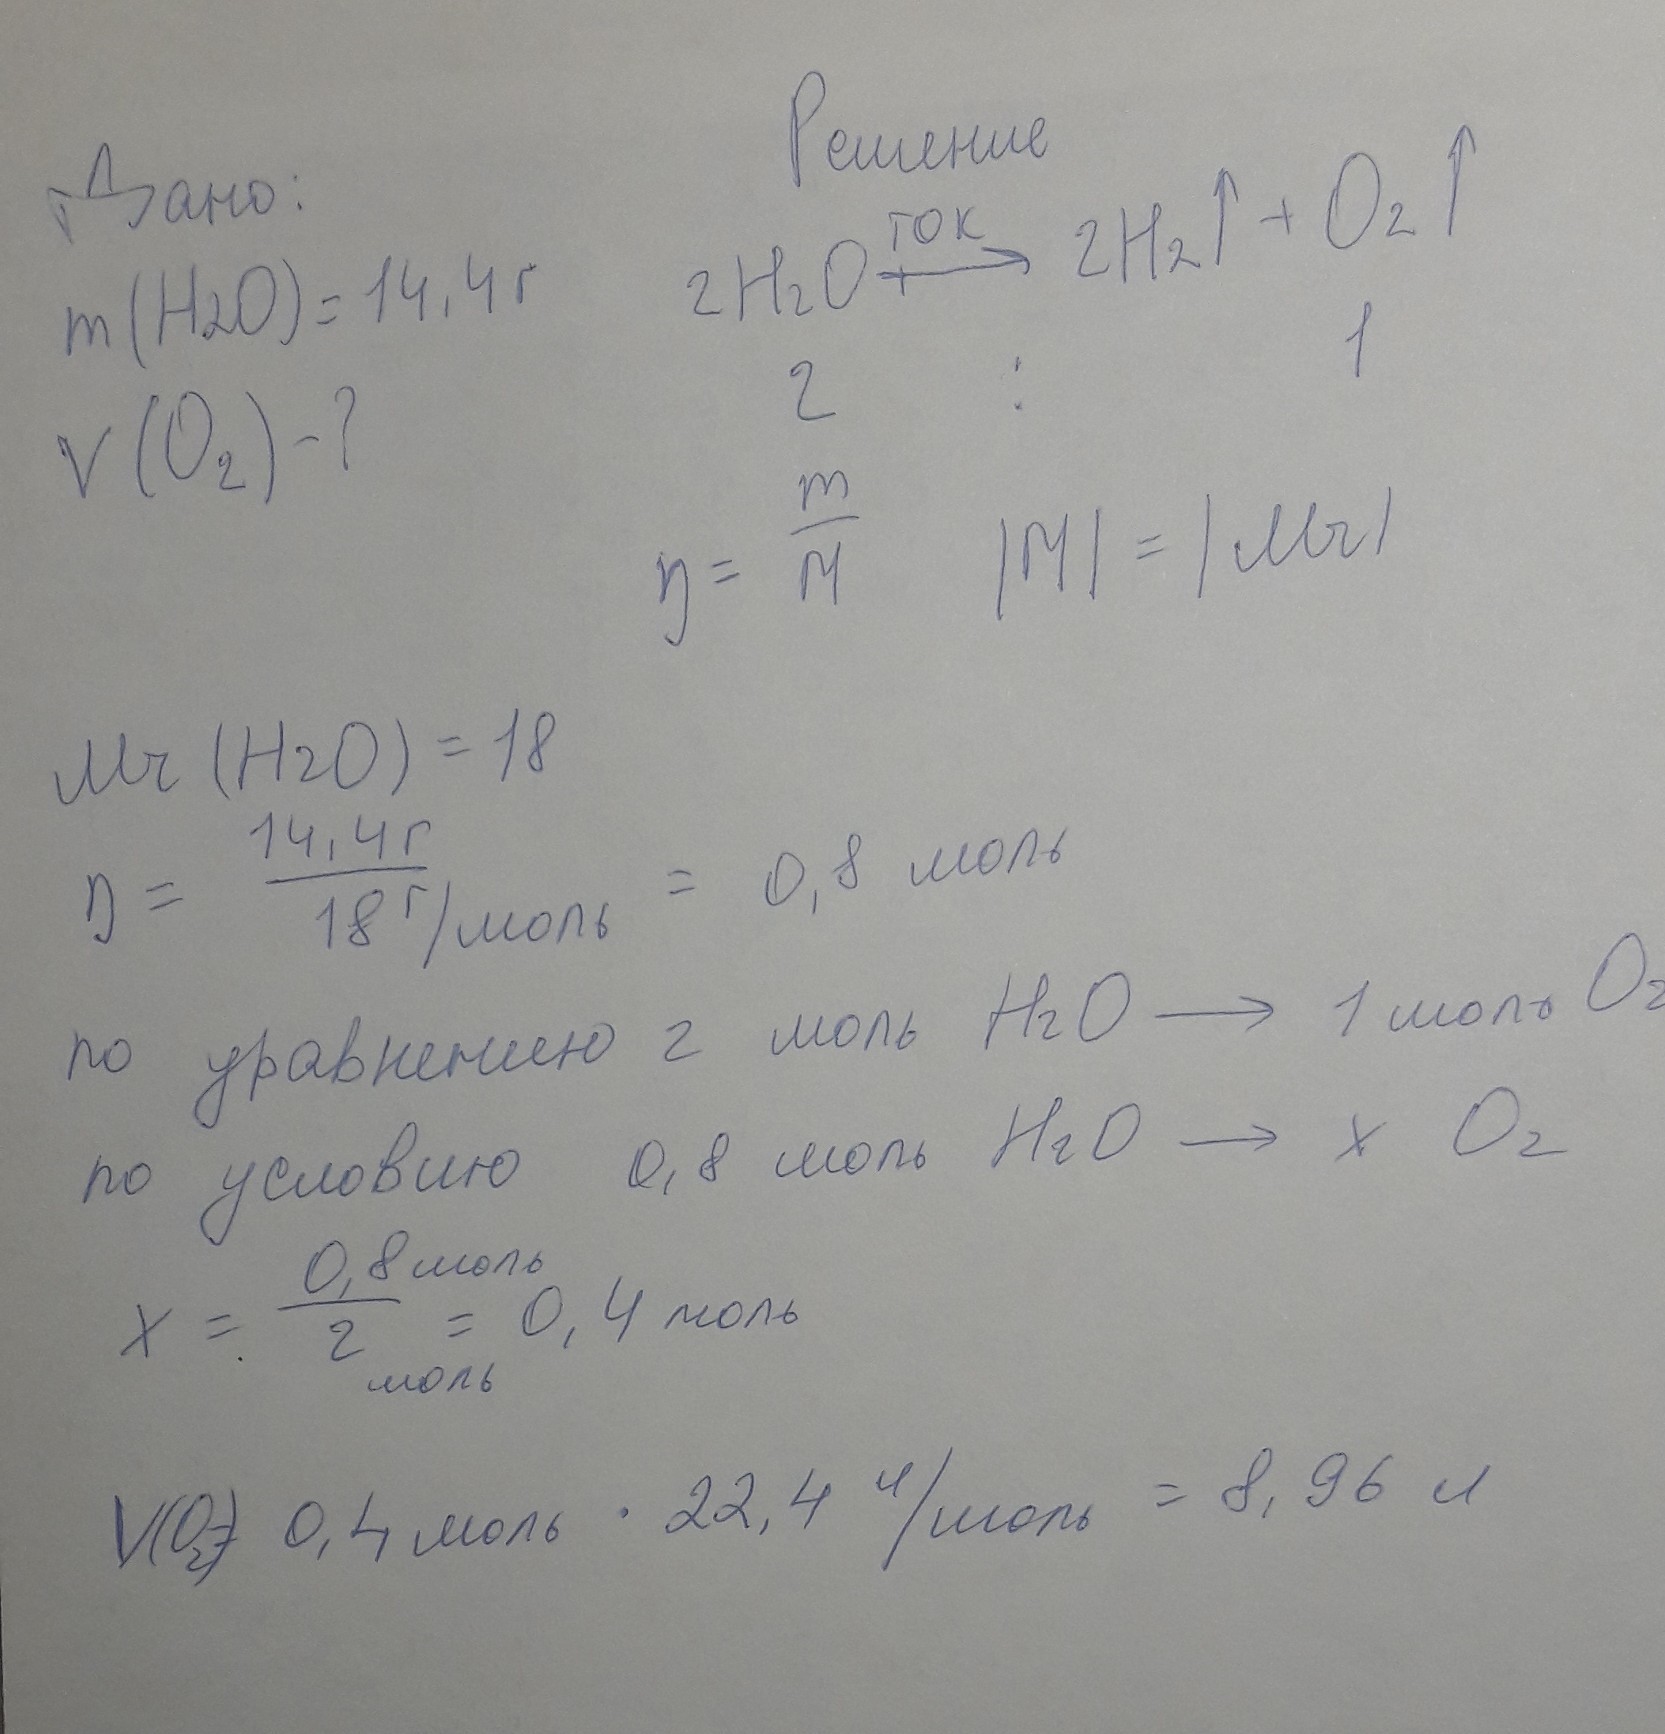 Решение
Дано:
m(H2O)=14,4г
V(O2)-?
2H2O ток → 2H2↑ + O2↑
2 : 1
n = m/M |M| = |Mr|
Mr (H2O) = 18
n = 14,4г / 18 г/моль = 0,8 моль
по уравнению 2 моль H2O → 1 моль O2
по условию 0,8 моль H2O → x O2
x = 0,8 моль / 2 моль = 0,4 моль
V(O2)= 0,4 моль · 22,4 л/моль = 8,96 л